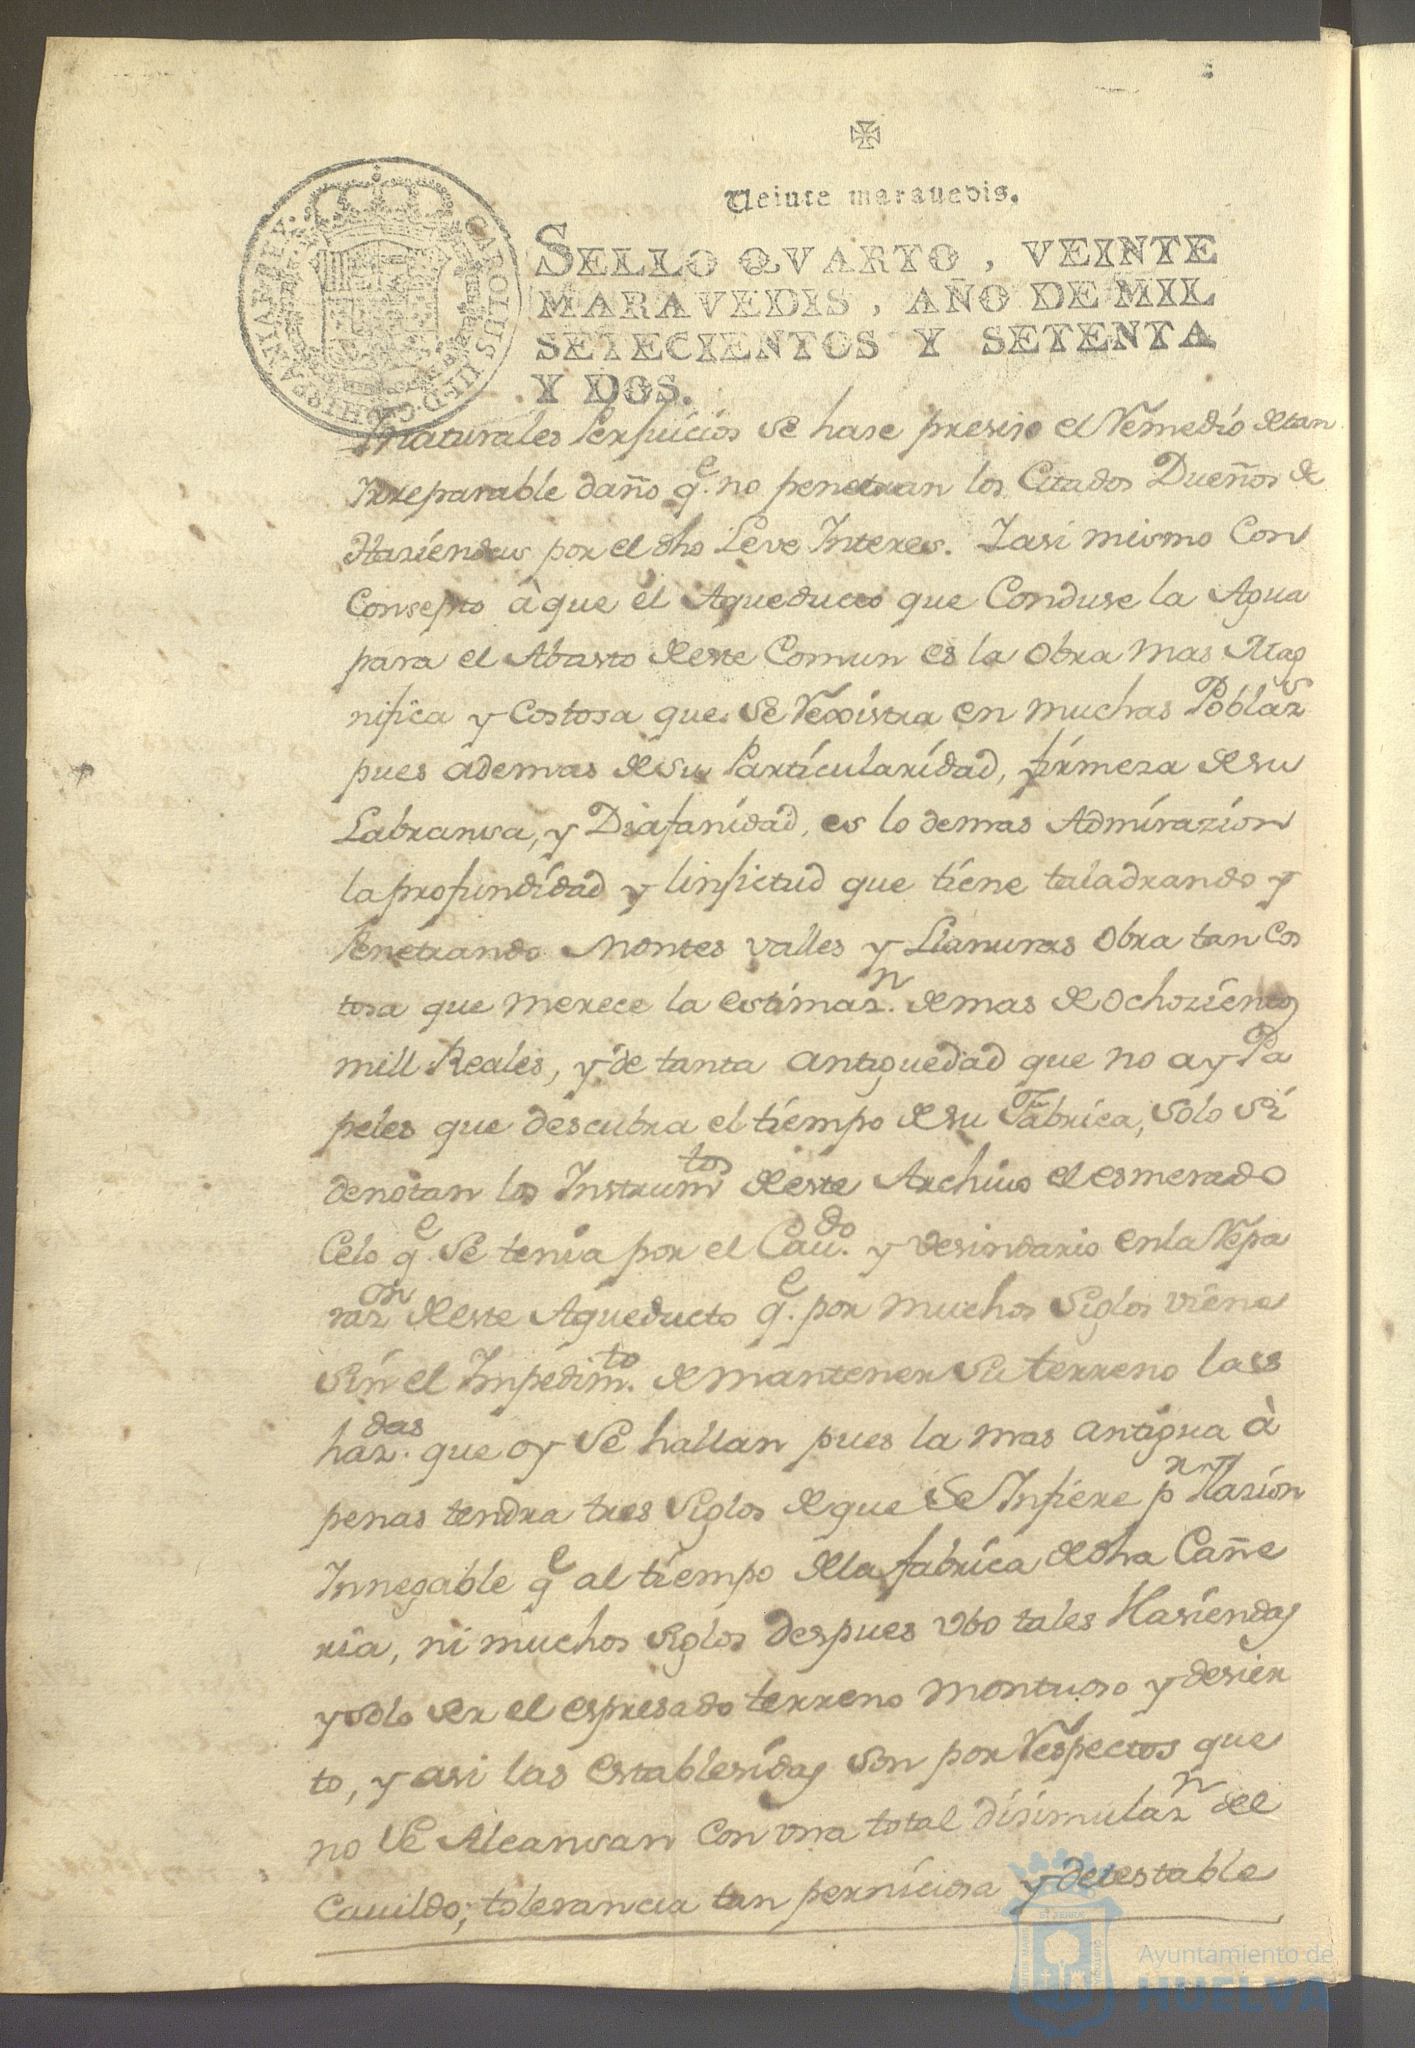 Veinte maravedis.
SELLO QVARTO, VEINTE
MARAVEDIS, AÑO DE MIL
SETECIENTOS Y SETENTA
Y DOS.
CAROLUS III D.G. HISPANIAR. REX
naturales Perjuicios se hase presiso el Remedio de tan
Irreparable daño q.e no penetran los Citados Dueños de
Haziendas por el dho Leve Interes. Iasi mismo Con
Consepto à que el Aqueducto que Conduse la Agua
para el Abasto de este Comun es la Obra mas Mag
nifica y Costosa que se Rexistra en muchas Poblaz.s
pues ademas de su Particularidad, firmeza de su
Labransa, y Diafanidad, es lo demas Admirazion
la profundidad y linfictud que tiene taladrando y
Penetrando Montes valles y Llanuras Obra tan Cos
tosa que merece la estimaz.n de mas de Ochozientos
mill Reales, y de tanta antiguedad que no ay Pa
peles que descubra el tiempo de su Fabrica, Solo Si
denotan los Instrum.tos de este Archivo el esmerado
Celo q.e Se tenia por el Cau.do y vesindario en la Repa
raz.on de este Aqueducto q.e por muchos Siglos viene
Sin el Impedim.to de mantener su terreno las
haz.das que oy Se hallan pues la mas antigua à
penas tendra tres Siglos de que Se Infiere p.r Razion
Innegable q.e al tiempo de la fabrica de dha Cañe
ria, ni muchos Siglos despues vbo tales Hasiendas
y solo ser el espresado terreno montuoso y desier
to, y asi las establesidas son por Respectos que
no Se Alcansan con vna total disimulaz.n del
Cauildo; tolerancia tan perniciosa y detestable
Ayuntamiento de
HUELVA